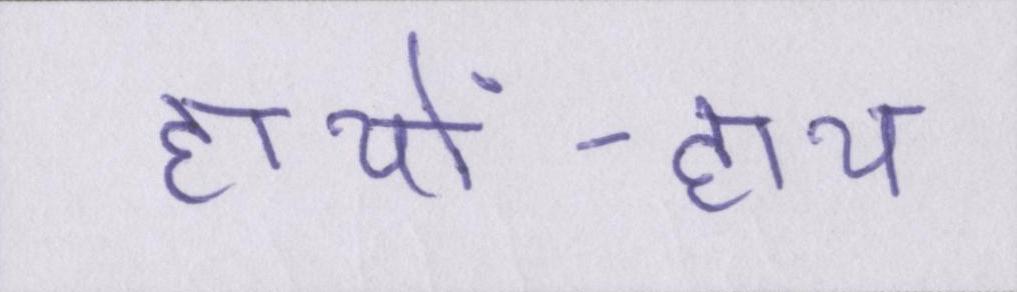 हाथों-हाथ